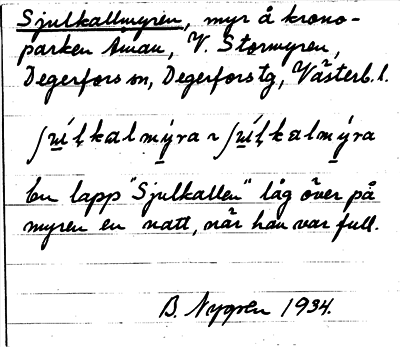 Sjulkallmyren, myr å krono-
parken Åman, V. Stormyren,
Degerfors sn, Degerfors tg, Västerb. l.
ʃu̲íl̥kalmý̲ra ~ ʃu̲íl̥kalmý̲ra
En lapp "Sjulkallen" låg över på
myren en natt, när han var full.
B. Nygren 1934.